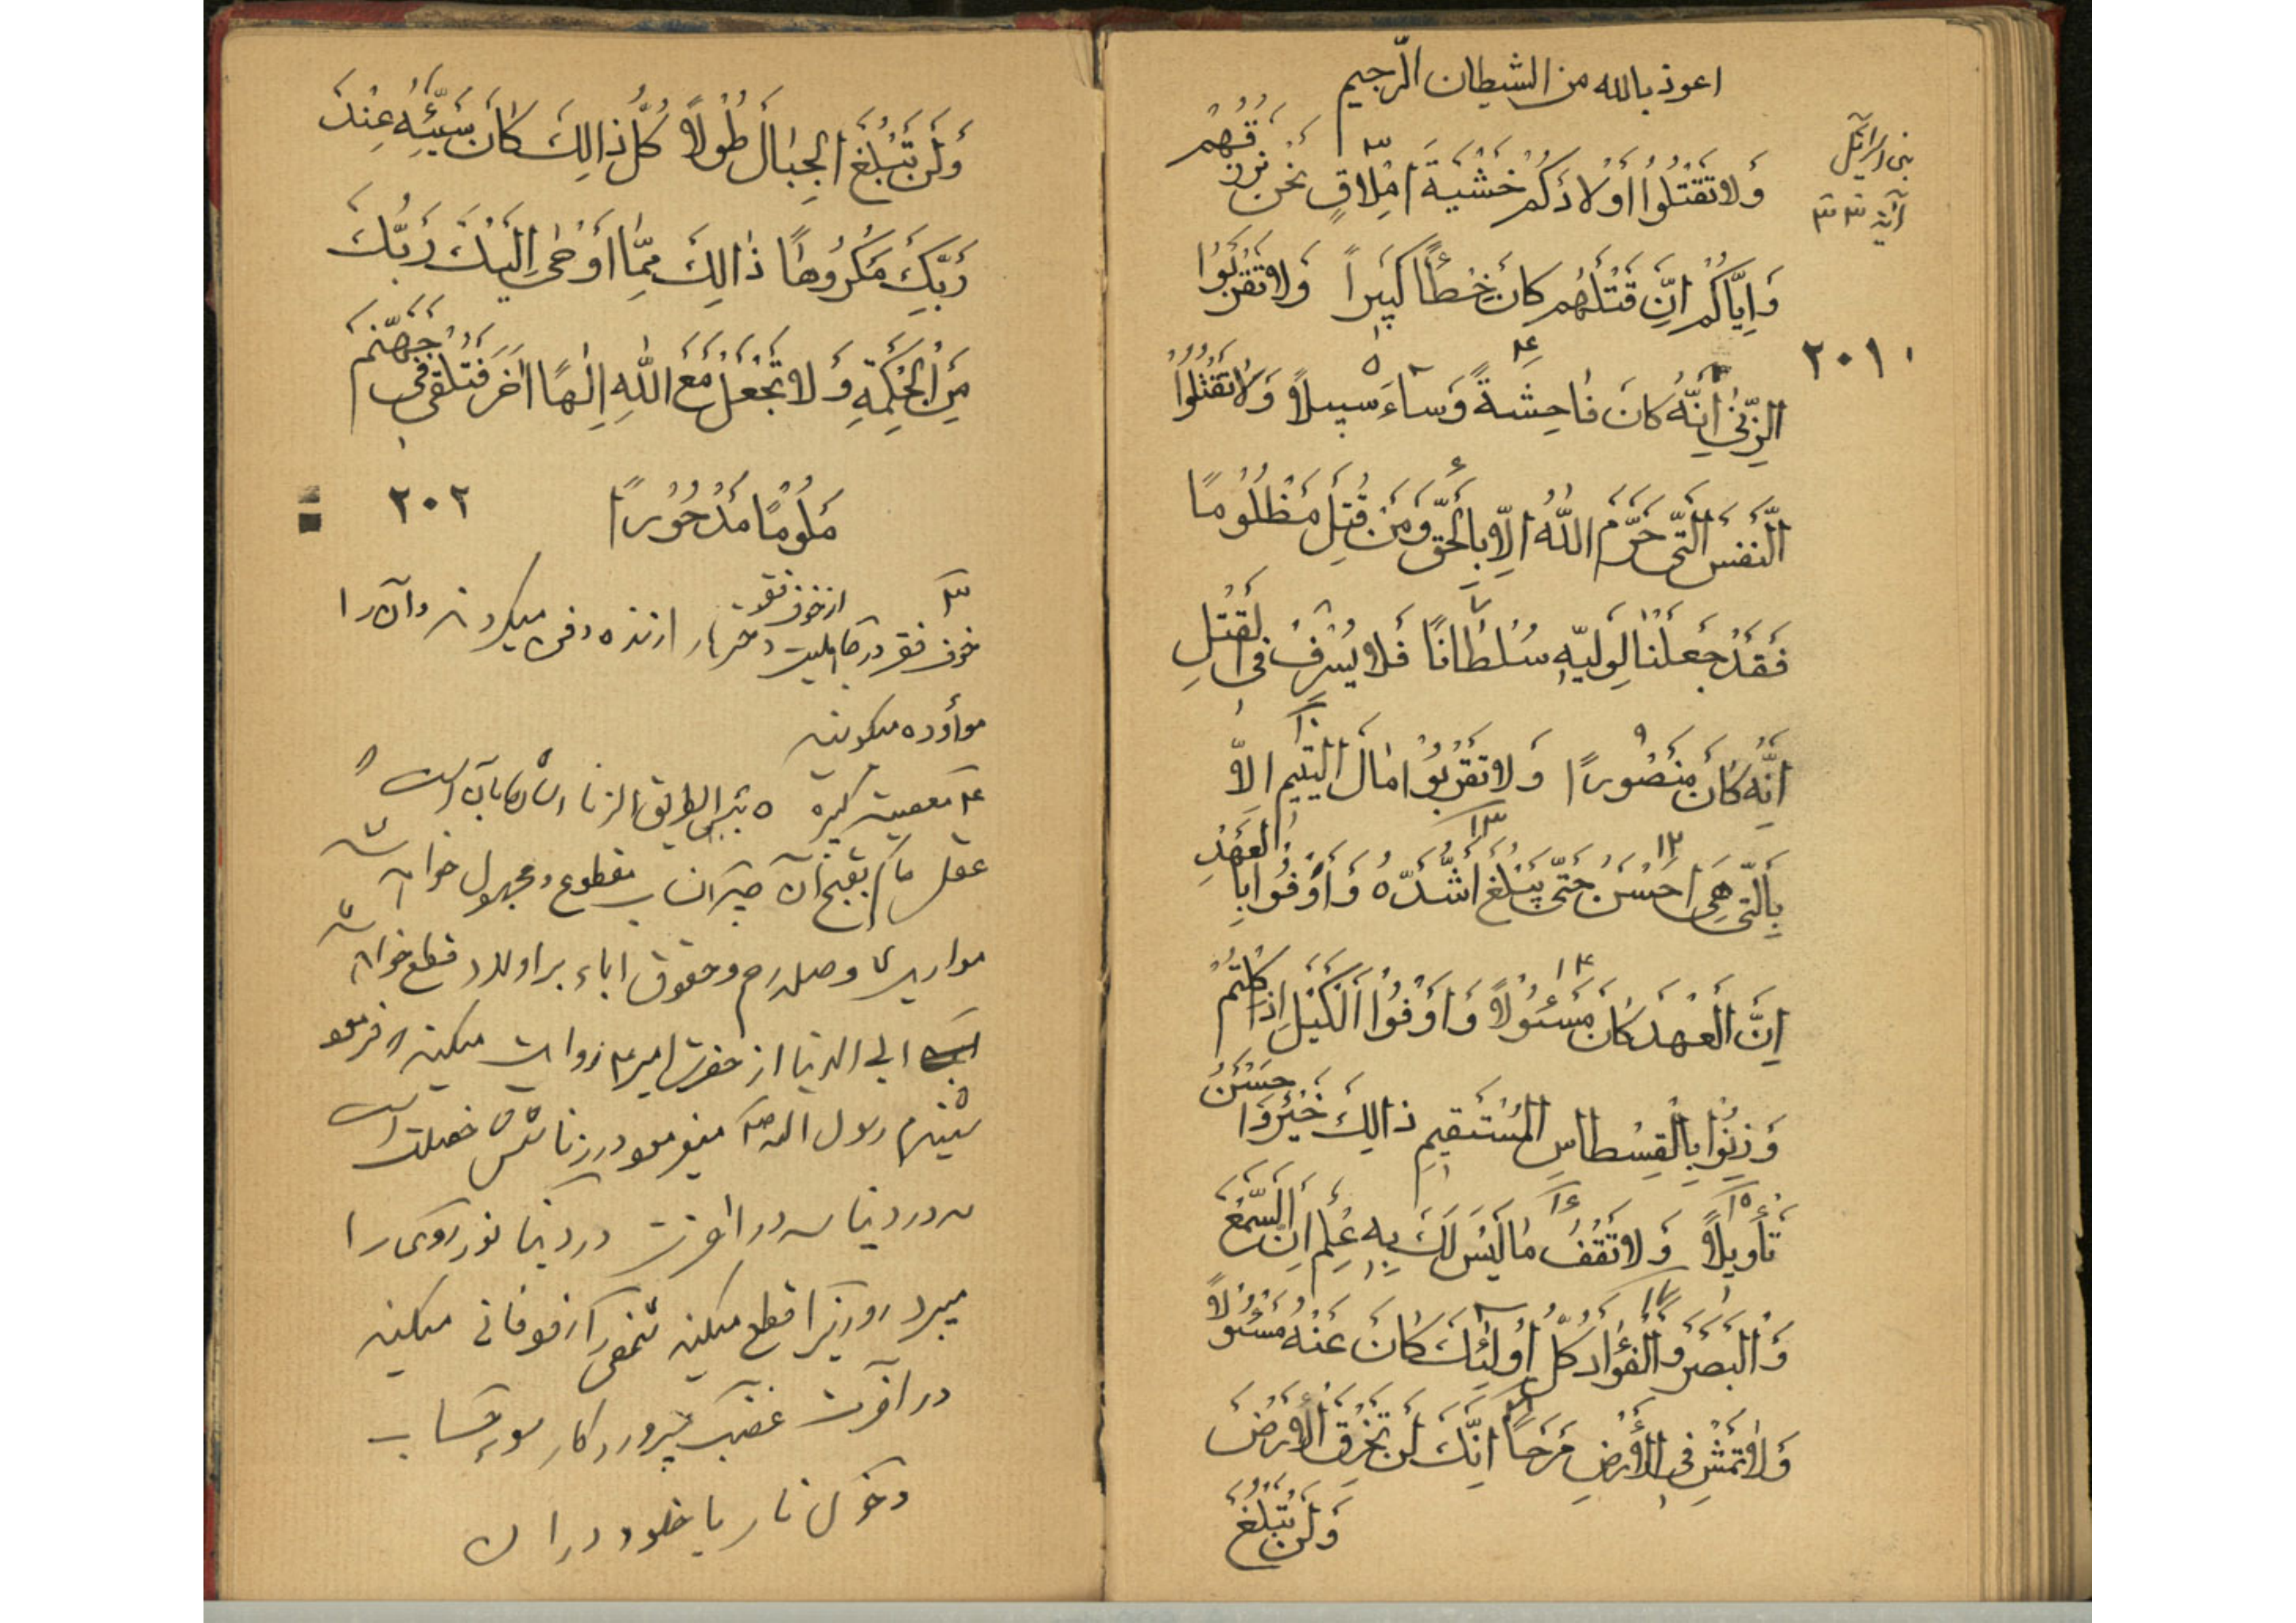 اعوذ بالله من الشیطان الرّجیم
بنی اسرائیل
آیه ٣٣
وَلا تَقْتُلُوا اَوْلادَكُمْ خَشْيَةَ اِمْلاقٍ نَحْنُ نَرْزُقُهُمْ
٣
وَاِيَّاكُمْ اِنَّ قَتْلَهُمْ كانَ خِطْأً كَبيراً وَلا تَقْرَبُوا
٢٠١
الزِّنىٰ اِنَّهُ كانَ فاحِشَةً وَساءَ سَبيلاً وَلا تَقْتُلُوا
٤ ٥
النَّفْسَ الَّتى حَرَّمَ اللّهُ اِلاّ بِالْحَقِّ وَمَنْ قُتِلَ مَظْلُومًا
٦
فَقَدْ جَعَلْنا لِوَلِيِّهِ سُلْطانًا فَلا يُسْرِفْ فِى القَتْلِ
٧ ٨
اِنَّهُ كانَ مَنْصُورًا وَلا تَقْرَبُوا مالَ الْيَتيمِ اِلاّ
٩ ١٠
بِالَّتى هِىَ اَحْسَنُ حَتّى يَبْلُغَ اَشُدَّهُ وَاَوْفُوا بِالْعَهْدِ
١٢ ١٣
اِنَّ الْعَهْدَ كانَ مَسْئُولاً وَاَوْفُوا الْكَيْلَ اِذا كِلْتُمْ
١٤
وَزِنُوا بِالْقِسْطاسِ الْمُسْتَقيمِ ذالِكَ خَيْرٌ وَاَحْسَنُ
تَأويلاً وَلا تَقْفُ ما لَيْسَ لَكَ بِهِ عِلْمٌ اِنَّ السَّمْعَ
١٥ ١٦
وَالْبَصَرَ وَالْفُؤادَ كُلُّ اُولئِكَ كانَ عَنْهُ مَسْئُولاً
١٧
وَلا تَمْشِ فِى الْاَرْضِ مَرَحاً اِنَّكَ لَنْ تَخْرِقَ الْاَرْضَ
وَلَنْ تَبْلُغَ
وَلَنْ تَبْلُغَ الْجِبالَ طُولاً كُلُّ ذالِكَ كانَ سَيِّئُهُ عِنْدَ
رَبِّكَ مَكْرُوهًا ذالِكَ مِمّا اَوْحىٰ اِلَيْكَ رَبُّكَ
مِنَ الْحِكْمَةِ وَلا تَجْعَلْ مَعَ اللّهِ اِلٰهًا اخَرَ فَتُلْقى فى جَهَنَّمَ
مَلُومًا مَدْحُورًا ٢٠٢
از خوف فقر
خوف فقر در جاهلیت دختر را زنده دفن میکردند و آن را
موأوده میگویند
٤ معصیت کبیره ٥
عقل حاکم بقبح آن
مواریث و صله رحم و حقوق اباء بر اولاد قطع خواهد
ابی الدنیا از حضرت امیر ع روایت میکند فرمود
شنیدم رسول الله ص میفرمود در زنا شش خصلت است
سه در دنیا سه در اخرت در دنیا نور روی را
میبرد روزی را قطع میکند فانی میکند
در آخرت غضب پروردگار سوء حساب
دخول نار یا خلود در ان